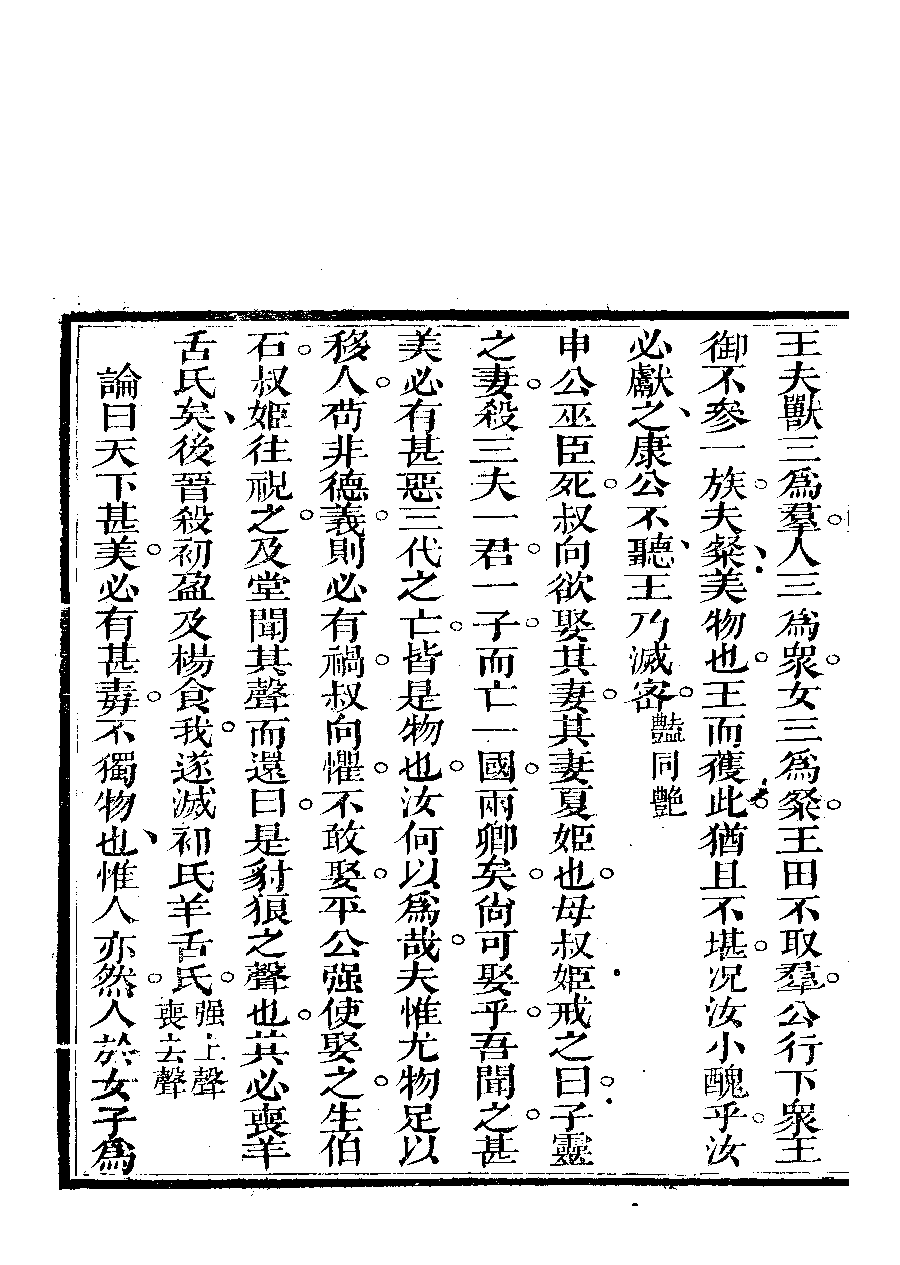 王夫獸三爲羣人三爲衆女三爲粲王田不取羣公行下衆王
御不參一族夫粲美物也王而獲此猶且不堪况汝小醜乎汝
必獻之康公不聽王乃滅密豔同艷
申公巫臣死叔向欲娶其妻其妻夏姬也母叔姬戒之曰子靈
之妻殺三夫一君一子而亡一國兩卿矣尙可娶乎吾聞之甚
美必有甚惡三代之亡皆是物也汝何以爲哉夫惟尤物足以
移人苟非德義則必有禍叔向懼不敢娶平公强使娶之生伯
石叔姬往視之及堂聞其聲而還曰是豺狼之聲也其必喪羊
舌氏矣後晉殺初盈及楊食我遂滅初氏羊舌氏强上聲喪去聲
論曰天下甚美必有甚毒不獨物也惟人亦然人於女子爲